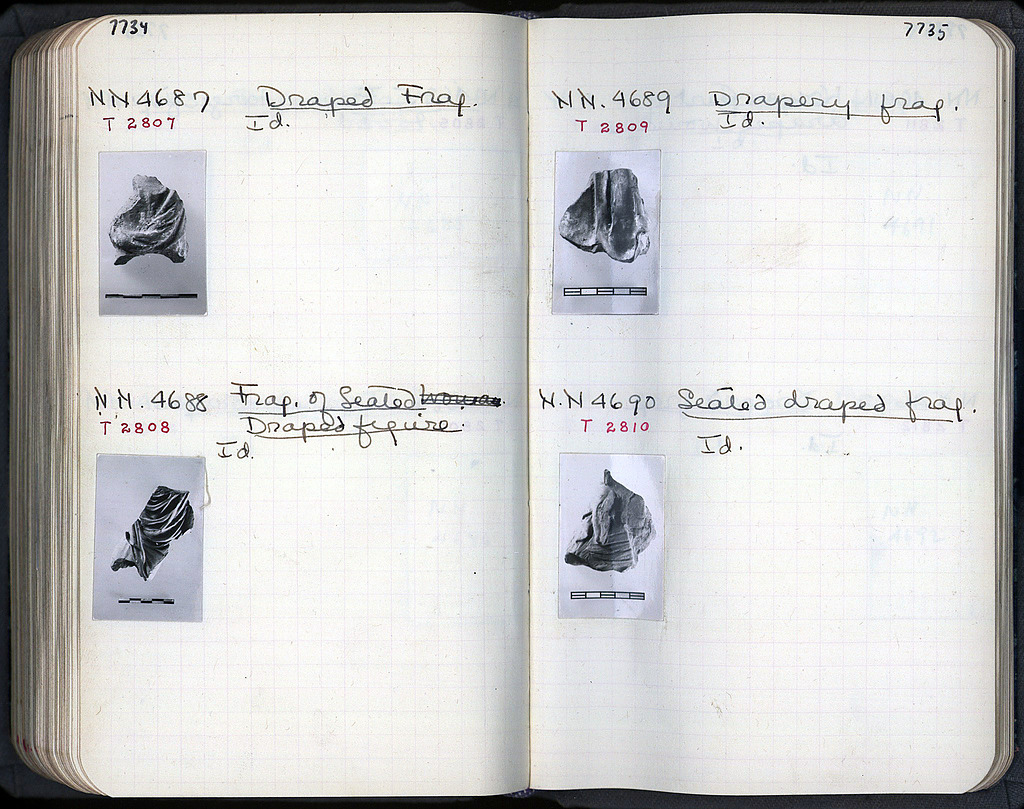 7734
NN 4687 Draped Frag.
T 2807 Id.
N.N. 4688 Frag. of Seated
T 2808 Draped figure.
Id.
7735
NN. 4689 Drapery frag.
T 2809 Id.
N.N 4690 Seated draped frag.
T 2810
Id.